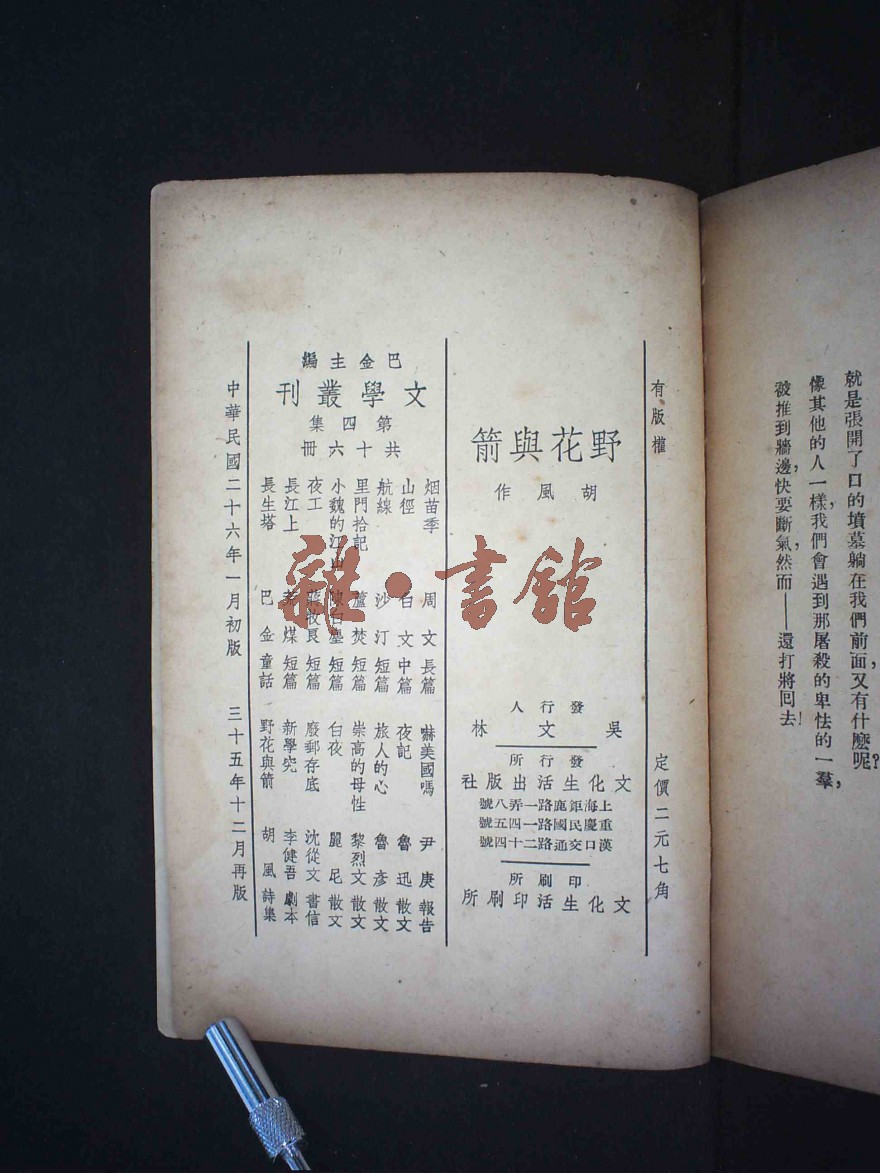 就是張開了口的墳墓躺在我們前面,又有什麼呢?
像其他的人一樣,我們會遇到那屠殺的卑怯的一羣,
被推到牆邊,快要斷氣,然而——還打將回去!
有版權 定價二元七角
野花與箭
胡風作
發行人
吳文林
發行所
文化生活出版社
上海鉅鹿路一弄八號
重慶民國路一四五號
漢口交通路二十四號
印刷所
文化生活印刷所
巴金主編
文學叢刊
第四集
共十六冊
烟苗季 周文 長篇 嚇美國嗎 尹庚 報告
山徑 白文 中篇 夜記 魯迅 散文
航線 沙汀 短篇 旅人的心 魯彥 散文
里門拾記 蘆焚 短篇 崇高的母性 黎烈文 散文
小魏的江山 陳白塵 短篇 白夜 麗尼 散文
夜工 蔣牧良 短篇 廢郵存底 沈從文 書信
長江上 荒煤 短篇 新學究 李健吾 劇本
長生塔 巴金 童話 野花與箭 胡風 詩集
中華民國二十六年一月初版 三十五年十二月再版
雜·書館